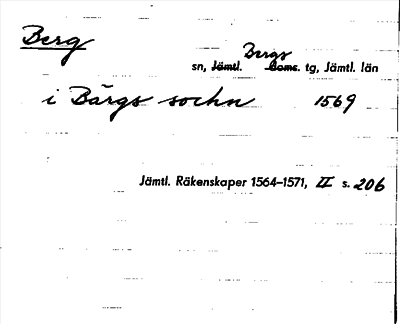 Berg
Bergs
sn, Jämtl. Doms. tg, Jämtl. län
i Bärgs sochn 1569
Jämtl. Räkenskaper 1564–1571, II s. 206